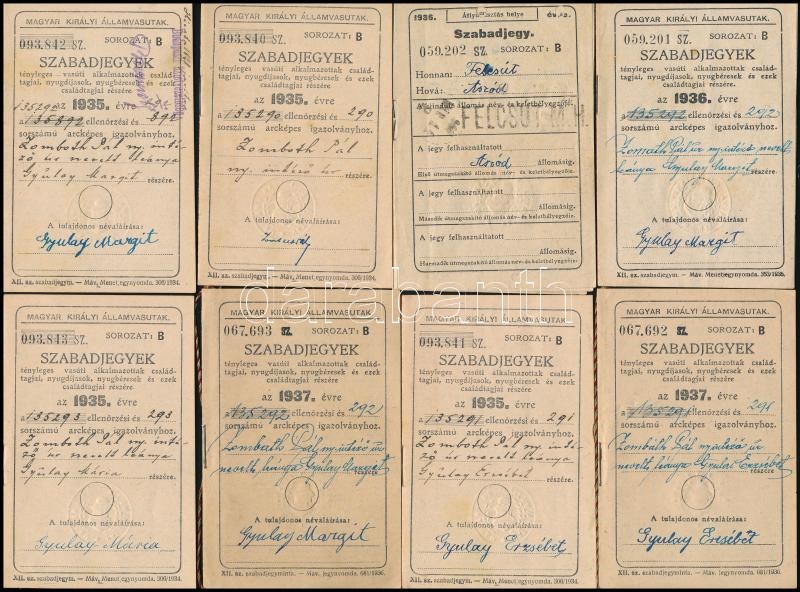 MAGYAR KIRÁLYI ÁLLAMVASUTAK.
093.842 SZ. SOROZAT: B
SZABADJEGYEK
tényleges vasúti alkalmazottak család-
tagjai, nyugdíjasok, nyugbéresek és ezek
családtagjai részére
az 1935. évre
135290
a 135892 ellenőrzési és 892
sorszámú arcképes igazolványhoz.
Zomboth Pál ny. inté-
ző úr nevelt leánya
Gyulay Margit részére.
A tulajdonos névaláírása:
Gyulay Margit
XII. sz. szabadjegym. — Máv. Menetjegynyomda. 306/1934.
MAGYAR KIRÁLYI ÁLLAMVASUTAK.
093.840 SZ. SOROZAT: B
SZABADJEGYEK
tényleges vasúti alkalmazottak család-
tagjai, nyugdíjasok, nyugbéresek és ezek
családtagjai részére
az 1935. évre
a 135290 ellenőrzési és 290
sorszámú arcképes igazolványhoz.
Zomboth Pál
ny. intéző úr
részére.
A tulajdonos névaláírása:
XII. sz. szabadjegym. — Máv. Menetjegynyomda. 306/1934.
1936.
Szabadjegy.
059.202 SZ. B
Honnan: Felcsút
Hová: Aszód
A kiinduló állomás név- és keletbélyegzője:
FELCSUT M.H.
A jegy felhasználtatott
Aszód állomásig.
Első útmegszakító állomás név- és keletbélyegzője.
A jegy felhasználtatott
állomásig.
Második útmegszakító állomás név- és keletbélyegzője.
A jegy felhasználtatott
állomásig.
Harmadik útmegszakító állomás név- és keletbélyegzője.
MAGYAR KIRÁLYI ÁLLAMVASUTAK.
059.201 SZ. SOROZAT: B
SZABADJEGYEK
tényleges vasúti alkalmazottak család-
tagjai, nyugdíjasok, nyugbéresek és ezek
családtagjai részére
az 1936. évre
a 135292 ellenőrzési és 292
sorszámú arcképes igazolványhoz.
Zomboth Pál úr ny. intéző nevelt
leánya Gyulay Margit részére.
A tulajdonos névaláírása:
Gyulay Margit
XII. sz. szabadjegym. — Máv. Menetjegynyomda. 353/1935.
MAGYAR KIRÁLYI ÁLLAMVASUTAK.
093.843 SZ. SOROZAT: B
SZABADJEGYEK
tényleges vasúti alkalmazottak család-
tagjai, nyugdíjasok, nyugbéresek és ezek
családtagjai részére
az 1935. évre
a 135293 ellenőrzési és 293
sorszámú arcképes igazolványhoz.
Zomboth Pál ny. inté-
ző úr nevelt leánya
Gyulay Mária részére.
A tulajdonos névaláírása:
Gyulay Mária
XII. sz. szabadjegym. — Máv. Menetjegynyomda. 306/1934.
MAGYAR KIRÁLYI ÁLLAMVASUTAK.
067.693 SZ. SOROZAT: B
SZABADJEGYEK
tényleges vasúti alkalmazottak család-
tagjai, nyugdíjasok, nyugbéresek és ezek
családtagjai részére
az 1937. évre
a 135292 ellenőrzési és 292
sorszámú arcképes igazolványhoz.
Zombáth Pál ny. intéző úr
nevelt leánya Gyulay Margit részére.
A tulajdonos névaláírása:
Gyulay Margit
XII. sz. szabadjegyminta. — Máv. jegynyomda. 681/1936.
MAGYAR KIRÁLYI ÁLLAMVASUTAK.
093.841 SZ. SOROZAT: B
SZABADJEGYEK
tényleges vasúti alkalmazottak család-
tagjai, nyugdíjasok, nyugbéresek és ezek
családtagjai részére
az 1935. évre
a 135291 ellenőrzési és 291
sorszámú arcképes igazolványhoz.
Zomboth Pál ny. inté-
ző úr nevelt leánya
Gyulay Erzsébet részére.
A tulajdonos névaláírása:
Gyulay Erzsébet
XII. sz. szabadjegym. — Máv. Menetjegynyomda. 306/1934.
MAGYAR KIRÁLYI ÁLLAMVASUTAK.
067.692 SZ. SOROZAT: B
SZABADJEGYEK
tényleges vasúti alkalmazottak család-
tagjai, nyugdíjasok, nyugbéresek és ezek
családtagjai részére
az 1937. évre
a 135291 ellenőrzési és 291
sorszámú arcképes igazolványhoz.
Zombáth Pál ny. intéző úr
nevelt leánya Gyulai Erzsébet
részére.
A tulajdonos névaláírása:
Gyulay Erzsébet
XII. sz. szabadjegyminta. — Máv. jegynyomda. 681/1936.
darabanth